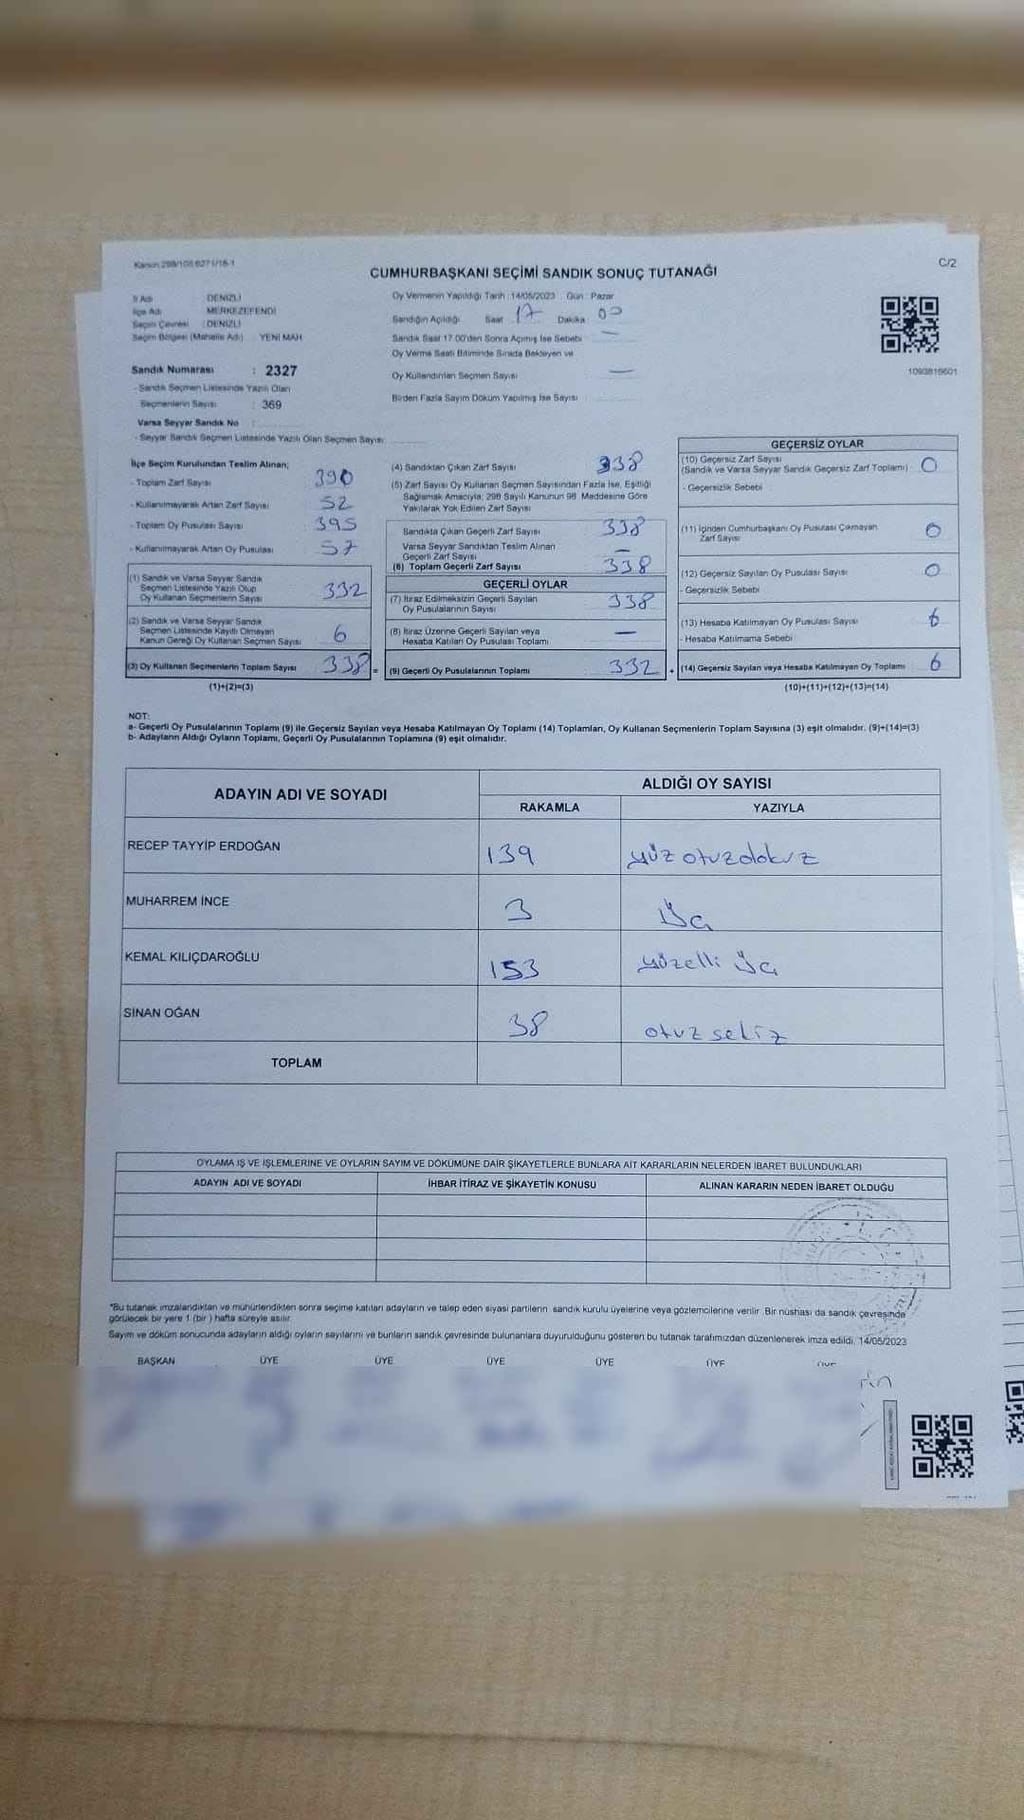 Kanun 298/105 6271/18-1
C/2
CUMHURBAŞKANI SEÇİMİ SANDIK SONUÇ TUTANAĞI
İl Adı DENİZLİ
İlçe Adı MERKEZEFENDİ
Seçim Çevresi : DENİZLİ
Seçim Bölgesi (Mahalle Adı) YENİ MAH
Sandık Numarası : 2327
- Sandık Seçmen Listesinde Yazılı Olan
Seçmenlerin Sayısı : 369
Varsa Seyyar Sandık No :
- Seyyar Sandık Seçmen Listesinde Yazılı Olan Seçmen Sayısı
Oy Vermenin Yapıldığı Tarih : 14/05/2023 Gün : Pazar
Sandığın Açıldığı Saat 17 Dakika 00
Sandık Saat 17.00'den Sonra Açımış İse Sebebi —
Oy Verme Saati Bitiminde Sırada Bekleyen ve
Oy Kullandırılan Seçmen Sayısı —
Birden Fazla Sayım Döküm Yapılmış İse Sayısı
1093816601
İlçe Seçim Kurulundan Teslim Alınan;
- Toplam Zarf Sayısı 390
- Kullanılmayarak Artan Zarf Sayısı 52
- Toplam Oy Pusulası Sayısı 395
- Kullanılmayarak Artan Oy Pusulası 57
(1) Sandık ve Varsa Seyyar Sandık
Seçmen Listesinde Yazılı Olup
Oy Kullanan Seçmenlerin Sayısı 332
(2) Sandık ve Varsa Seyyar Sandık
Seçmen Listesinde Kayıtlı Olmayan
Kanun Gereği Oy Kullanan Seçmen Sayısı 6
(3) Oy Kullanan Seçmenlerin Toplam Sayısı 338 =
(1)+(2)=(3)
(4) Sandıktan Çıkan Zarf Sayısı 338
(5) Zarf Sayısı Oy Kullanan Seçmen Sayısından Fazla İse, Eşitliği
Sağlamak Amacıyla; 298 Sayılı Kanunun 98. Maddesine Göre
Yakılarak Yok Edilen Zarf Sayısı
Sandıkta Çıkan Geçerli Zarf Sayısı 338
Varsa Seyyar Sandıktan Teslim Alınan
Geçerli Zarf Sayısı —
(6) Toplam Geçerli Zarf Sayısı 338
GEÇERLİ OYLAR
(7) İtiraz Edilmeksizin Geçerli Sayılan
Oy Pusulalarının Sayısı 338
(8) İtiraz Üzerine Geçerli Sayılan veya
Hesaba Katılan Oy Pusulası Toplamı —
(9) Geçerli Oy Pusulalarının Toplamı 332 +
GEÇERSİZ OYLAR
(10) Geçersiz Zarf Sayısı
(Sandık ve Varsa Seyyar Sandık Geçersiz Zarf Toplamı) 0
- Geçersizlik Sebebi
(11) İçinden Cumhurbaşkanı Oy Pusulası Çıkmayan
Zarf Sayısı 0
(12) Geçersiz Sayılan Oy Pusulası Sayısı 0
- Geçersizlik Sebebi
(13) Hesaba Katılmayan Oy Pusulası Sayısı 6
- Hesaba Katılmama Sebebi
(14) Geçersiz Sayılan veya Hesaba Katılmayan Oy Toplamı 6
(10)+(11)+(12)+(13)=(14)
NOT:
a- Geçerli Oy Pusulalarının Toplamı (9) ile Geçersiz Sayılan veya Hesaba Katılmayan Oy Toplamı (14) Toplamları, Oy Kullanan Seçmenlerin Toplam Sayısına (3) eşit olmalıdır. (9)+(14)=(3)
b- Adayların Aldığı Oyların Toplamı, Geçerli Oy Pusulalarının Toplamına (9) eşit olmalıdır.
ADAYIN ADI VE SOYADI
ALDIĞI OY SAYISI
RAKAMLA YAZIYLA
RECEP TAYYİP ERDOĞAN 139 yüz otuzdokuz
MUHARREM İNCE 3 Üç
KEMAL KILIÇDAROĞLU 153 yüzelli üç
SİNAN OĞAN 38 otuz sekiz
TOPLAM
OYLAMA İŞ VE İŞLEMLERİNE VE OYLARIN SAYIM VE DÖKÜMÜNE DAİR ŞİKAYETLERLE BUNLARA AİT KARARLARIN NELERDEN İBARET BULUNDUKLARI
ADAYIN ADI VE SOYADI İHBAR İTİRAZ VE ŞİKAYETİN KONUSU ALINAN KARARIN NEDEN İBARET OLDUĞU
*Bu tutanak imzalandıktan ve mühürlendikten sonra seçime katılan adayların ve talep eden siyasi partilerin sandık kurulu üyelerine veya gözlemcilerine verilir. Bir nüshası da sandık çevresinde
görülecek bir yere 1 (bir ) hafta süreyle asılır.
Sayım ve döküm sonucunda adayların aldığı oyların sayılarını ve bunların sandık çevresinde bulunanlara duyurulduğunu gösteren bu tutanak tarafımızdan düzenlenerek imza edildi. 14/05/2023
BAŞKAN ÜYE ÜYE ÜYE ÜYE ÜYE